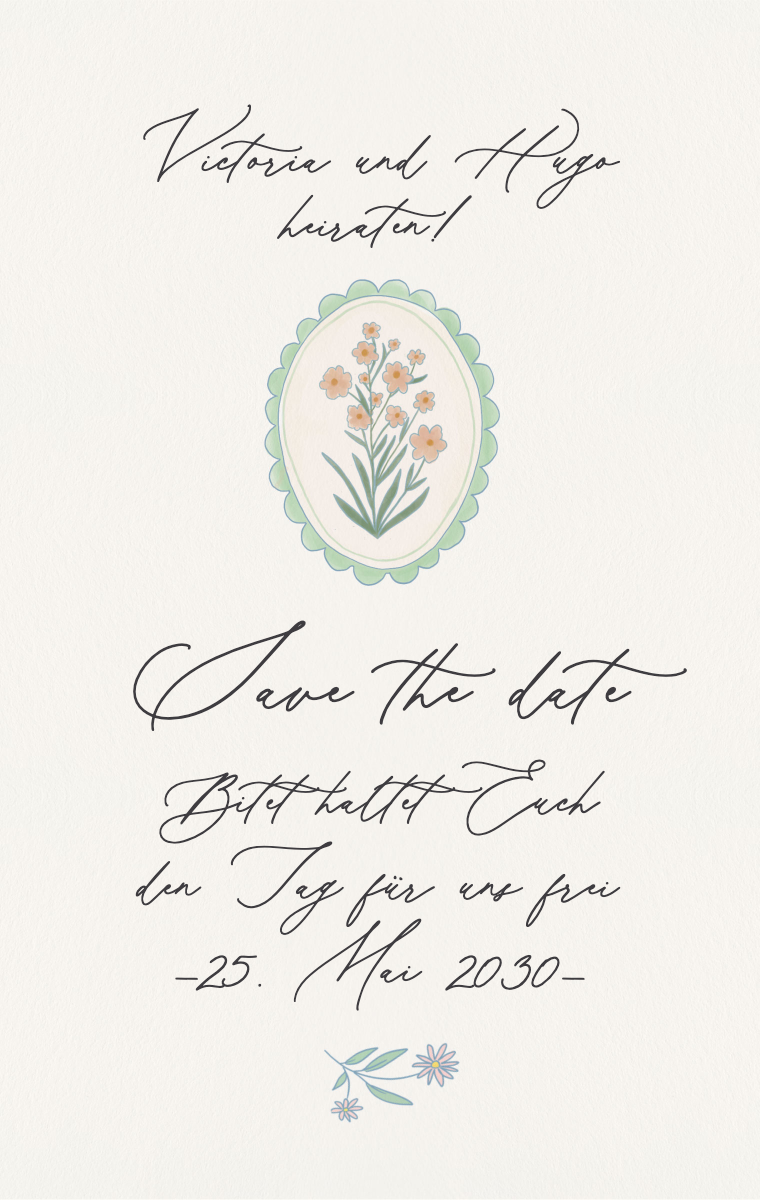 Victoria und Hugo
heiraten!
Save the date
Bitet haltet Euch
den Tag für uns frei
–25. Mai 2030–